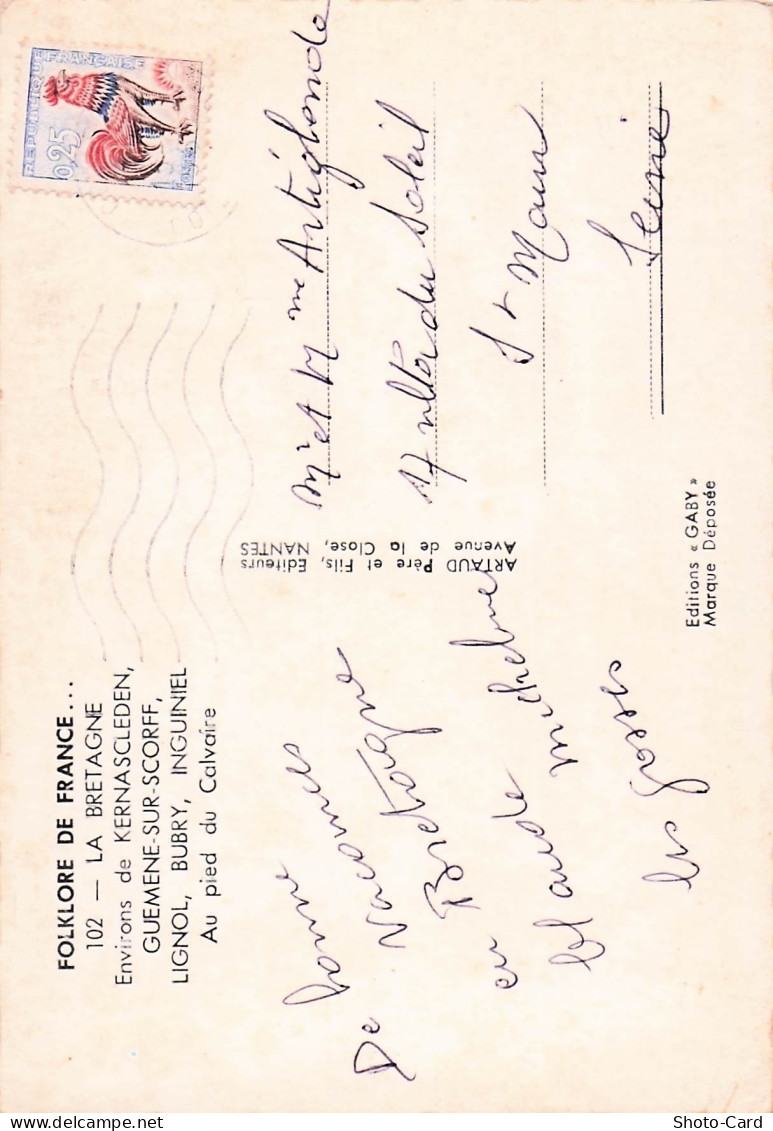 FOLKLORE DE FRANCE...
102 — LA BRETAGNE
Environs de KERNASCLEDEN,
GUEMENE-SUR-SCORFF,
LIGNOL, BUBRY, INGUINIEL
Au pied du Calvaire
De bonnes
Vacances
en Bretagne
Claude Micheline
les gosses
ARTAUD Père et Fils, Editeurs
Avenue de la Close, NANTES
Editions « GABY »
Marque Déposée
REPUBLIQUE FRANÇAISE
0,25
POSTES
Mr et Mme
17 du Soleil
St Maur
Seine
delcampe.net
Photo-Card